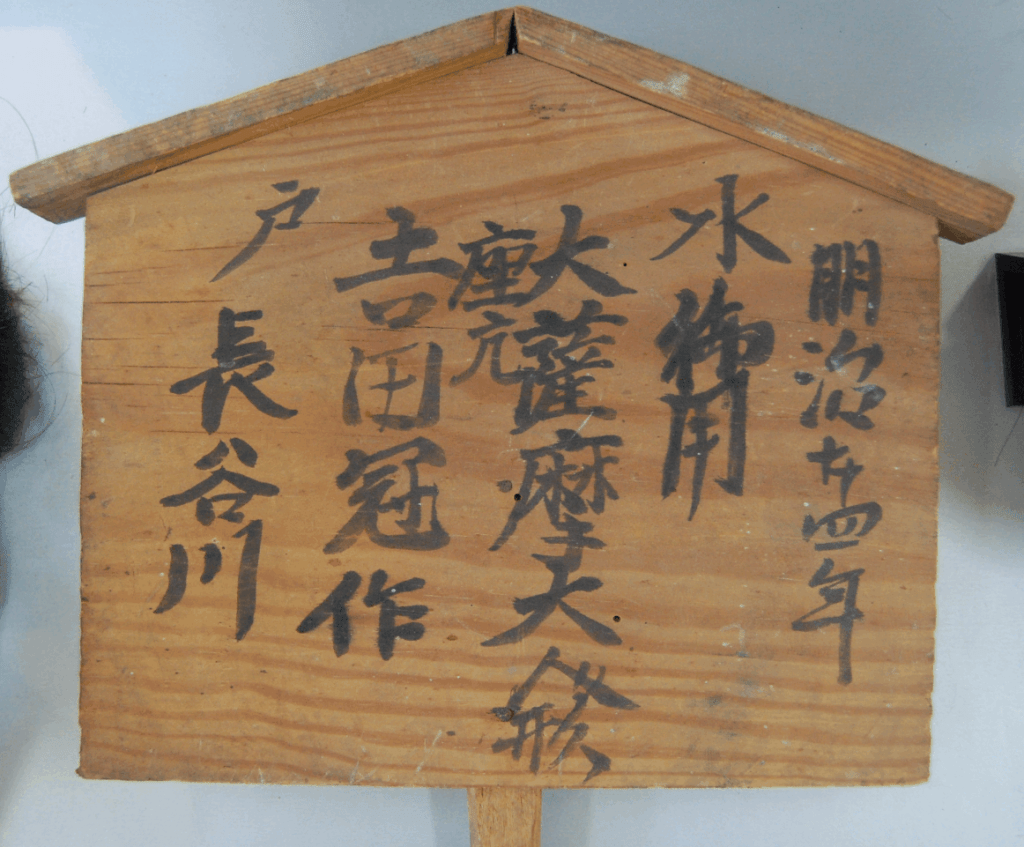 明治四年
水御用
大薩摩大人形
座元
吉田冠作
戸 長谷川